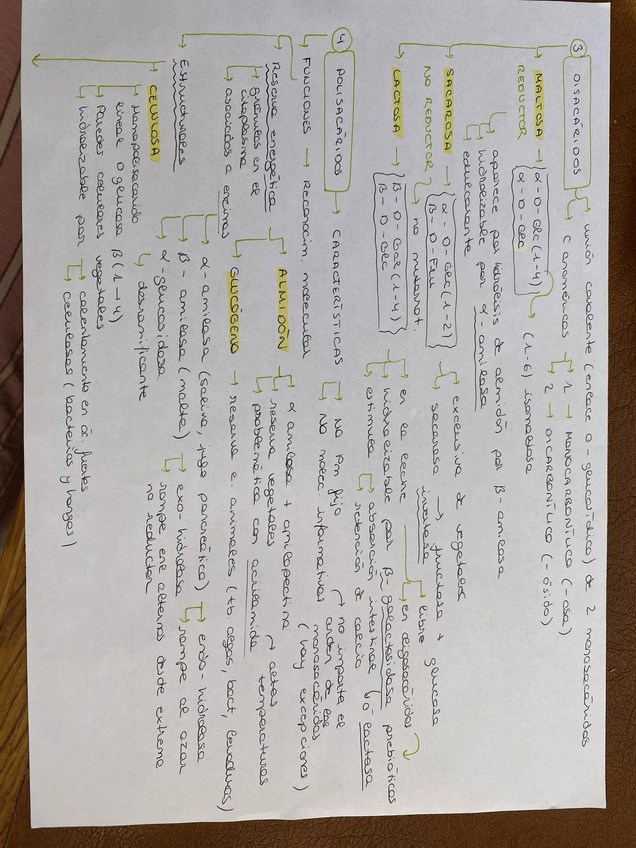 3 DISACÁRIDOS → unión covalente (enlace O-glucosídico) de 2 monosacáridos
C anoméricos → 1 → MONOCARBONÍLICO (-osa)
2 → DICARBONÍLICO (-ósido)
MALTOSA → α-D-Glc (1-4)
REDUCTOR α-D-Glc
(1-6) isomaltosa
aparece por hidrólisis de almidón por β-amilasa
hidrolizable por α-amilasa
edulcorante
SACAROSA → α-D-Glc (1-2)
NO REDUCTOR β-D-Fru
no mutarrot.
exclusiva de vegetales
sacarosa → fructosa + glucosa
invertasa
LACTOSA → β-D-Gal (1-4)
β-D-Glc
en la leche
libre
en oligosacáridos prebióticos
hidrolizable por β-galactosidasa ó lactasa
estimula
absorción intestinal
retención de calcio
4 POLISACÁRIDOS → CARACTERÍSTICAS
No Pm fijo
No molec. informativas
no importa el
orden de los
monosacáridos
(hay excepciones)
FUNCIONES → Reconocim. molecular
Reserva energética
gránulos en el
citoplasma
asociados a enzimas
ALMIDÓN
α amilosa + amilopectina
reserva vegetales
problemática con acrilamida
altas
temperaturas
GLUCÓGENO → reserva e. animales (tb algas, bact, levaduras)
α-amilasa (saliva, jugo pancreático) → endo-hidrolasa
rompe al azar
β-amilasa (malta) → exo-hidrolasa
rompe enl alternos desde extremo
no reductor
α-glucosidasa
desramificante
Estructurales
CELULOSA
Homopolisacárido
lineal D glucosa β(1→4)
Paredes celulares vegetales
hidrolizable por
calentamiento en ác. fuertes
celulasas (bacterias y hongos)